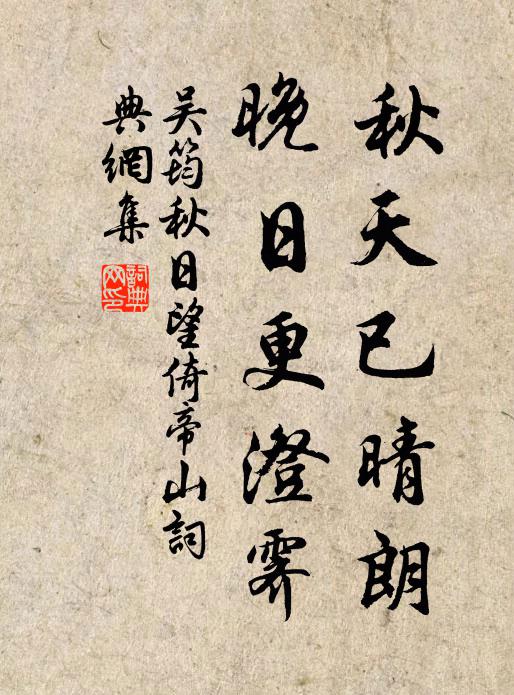 秋天已晴朗
晚日更澄霽
吴筠秋日望倚帝山詞
典網集
詞典網印